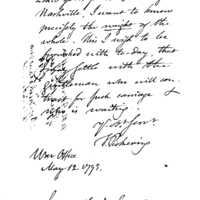 Nashville, I want to know
precisely the weight of the
whole. This I wish to be
furnished with to-day, that
I may settle with the
Gentleman who will con-
tract for such carriage &
who is waiting
T. Pickering
War Office
May 12. 1795.